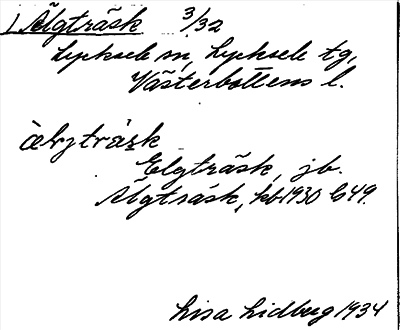 1 Älgträsk 3/32
Lycksele sn, Lycksele tg,
Västerbottens l.
Elgträsk, jb.
Älgträsk, kb 1930 b 49.
Lisa Lidberg 1934